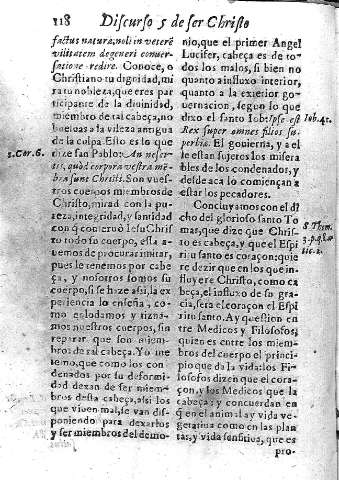 118 Discurso 5 de ser Christo
factus natura, noli in veterē
vilitatem degeneri conuer-
satione redire. Conoce, o
Christiano tu dignidad, mi
ra tu nobleza, que eres par
ticipante de la diuinidad,
miembro de tal cabeça, no
bueluas a la vileza antigua
de la culpa. Esto es lo que
dize san Pablo: An nescí-
tis, quòd corpora vestra mē
bra sunt Christi. Son vues-
tros cuerpos miembros de
Christo, mirad con la pu-
reza, integridad, y santidad
con q̄ conseruò Iesu Christ
to todo su cuerpo, essa a-
uemos de procurar imitar,
pues le tenemos por cabe
ça, y nosotros somos su
cuerpo, si se haze assi, la ex
periencia lo enseña, co-
mo enlodamos y tiznamos
nuestros cuerpos, sin
reparar que son miem-
bros de tal cabeça. Yo me
temo, que como los con
denados por su deformi-
dad dexan de ser miem-
bros desta cabeça, assi los
que viuen mal, se van dis-
poniendo para dexarlos
y ser miembros del demo-
1. Cor. 6.
nio, que el primer Angel
Lucifer, cabeça es de to-
dos los malos, si bien no
quanto a influxo interior,
quanto a la exterior go-
uernacion, segun lo que
dixo el santo Iob: Ipse est
Rex super omnes filios su-
perbiæ. El gouierna, y a el
le estàn sujetos los misera
bles de los condenados, y
desde acà lo comiençan a
estar los pecadores.
Concluyamos con el di
cho del glorioso santo To
mas, que dize que Chris-
to es cabeça, y que el Espi
ritu santo es coraçon: quie
re dezir que en los que in-
fluyere Christo, como ca
beça, el influxo de su gra-
cia, serà el coraçon el Espi
ritu santo. Ay question en
tre Medicos y Filosofos,
quien es entre los miem-
bros del cuerpo el princi-
pio que da la vida: los Fi-
losofos dizen que el cora-
çon, y los Medicos que la
cabeça: y concuerdan en
q̄ en el animal ay vida ve-
getatiua como en las plan
tas, y vida sensitiua, que es
pro-
Iob. 41.